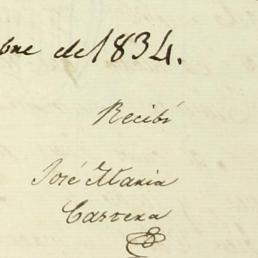 bre de 1834.
Recibí
José Maria
Carrera